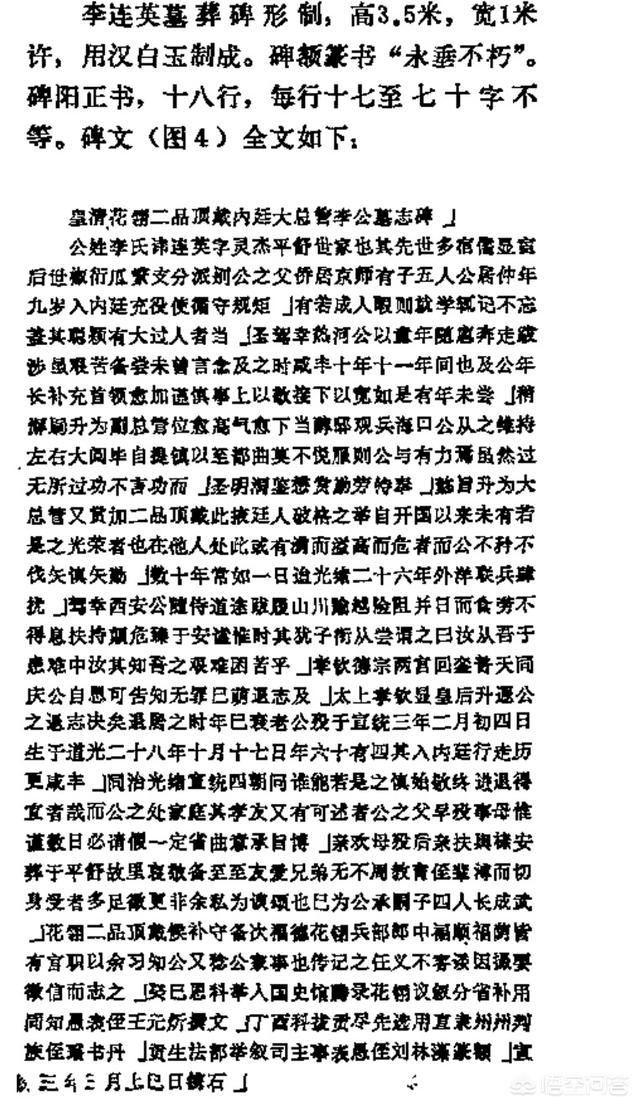 李连英墓葬碑形制，高3.5米，宽1米
许，用汉白玉制成。碑额篆书“永垂不朽”。
碑阳正书，十八行，每行十七至七十字不
等。碑文（图4）全文如下：
皇清花翎二品顶戴内廷大总管李公墓志碑」
公姓李氏讳连英字灵杰平舒世家也其先世多宿儒显宦
后世椒衍瓜繁支分派别公之父侨居京师有子五人公居仲年
九岁入内廷充役使循守规矩」有若成人暇则就学辄记不忘
盖其聪颖有大过人者当」圣驾幸热河公以童年随扈奔走跋
涉虽艰苦备尝未曾言念及之时咸丰十年十一年间也及公年
长补充首领愈加谨慎事上以敬接下以宽如是有年未尝」稍
懈局升为副总管位愈高气愈下当醇邸观兵海口公从之维持
左右大阅毕自提镇以至部曲莫不悦服则公与有力焉虽然过
无所过功不言功而」圣明洞鉴懋赏勤劳特奉」懿旨升为大
总管又赏加二品顶戴此掖廷人破格之举自开国以来未有若
是之光荣者也在他人处此或有满而溢高而危者而公不矜不
伐矢慎矢勤」数十年常如一日迨光绪二十六年外洋联兵肆
扰」驾幸西安公随侍道途跋履山川逾越险阻并日而食劳不
得息扶持颠危臻于安谧惟时其犹子衔从尝谓之曰汝从吾于
患难中汝其知吾之艰难困苦乎」孝钦德宗两宫回銮普天同
庆公自思可告知无罪已萌退志及」太上孝钦显皇后升遐公
之退志决矣退居之时年已衰老公殁于宣统三年二月初四日
生于道光二十八年十月十七日年六十有四其入内廷行走历
更咸丰」同治光绪宣统四朝问谁能若是之慎始敬终进退得
宜者哉而公之处家庭其孝友又有可述者公之父早殁事母惟
谨数日必请假一定省曲意承旨博」亲欢母殁后亲扶舆榇安
葬于平舒故里哀敬备至至友爱兄弟无不周教育侄辈溥而切
身受者多足征更非余私为谀颂也已为公承嗣子四人长成武
」花翎二品顶戴候补守备次福德花翎兵部郎中福顺福荫皆
有官职以余习知公又稔公家事也传记之任义不容诿因撮要
征信而志之」癸巳恩科举人国史馆誊录花翎议叙分省补用
同知愚表侄王元炘撰文」丁酉科拔贡尽先选用直隶州州判
族侄璠书丹」贡生法部举叙司主事表愚侄刘林藻篆额」宣
三年三月上巳日镌石」
悟空问答